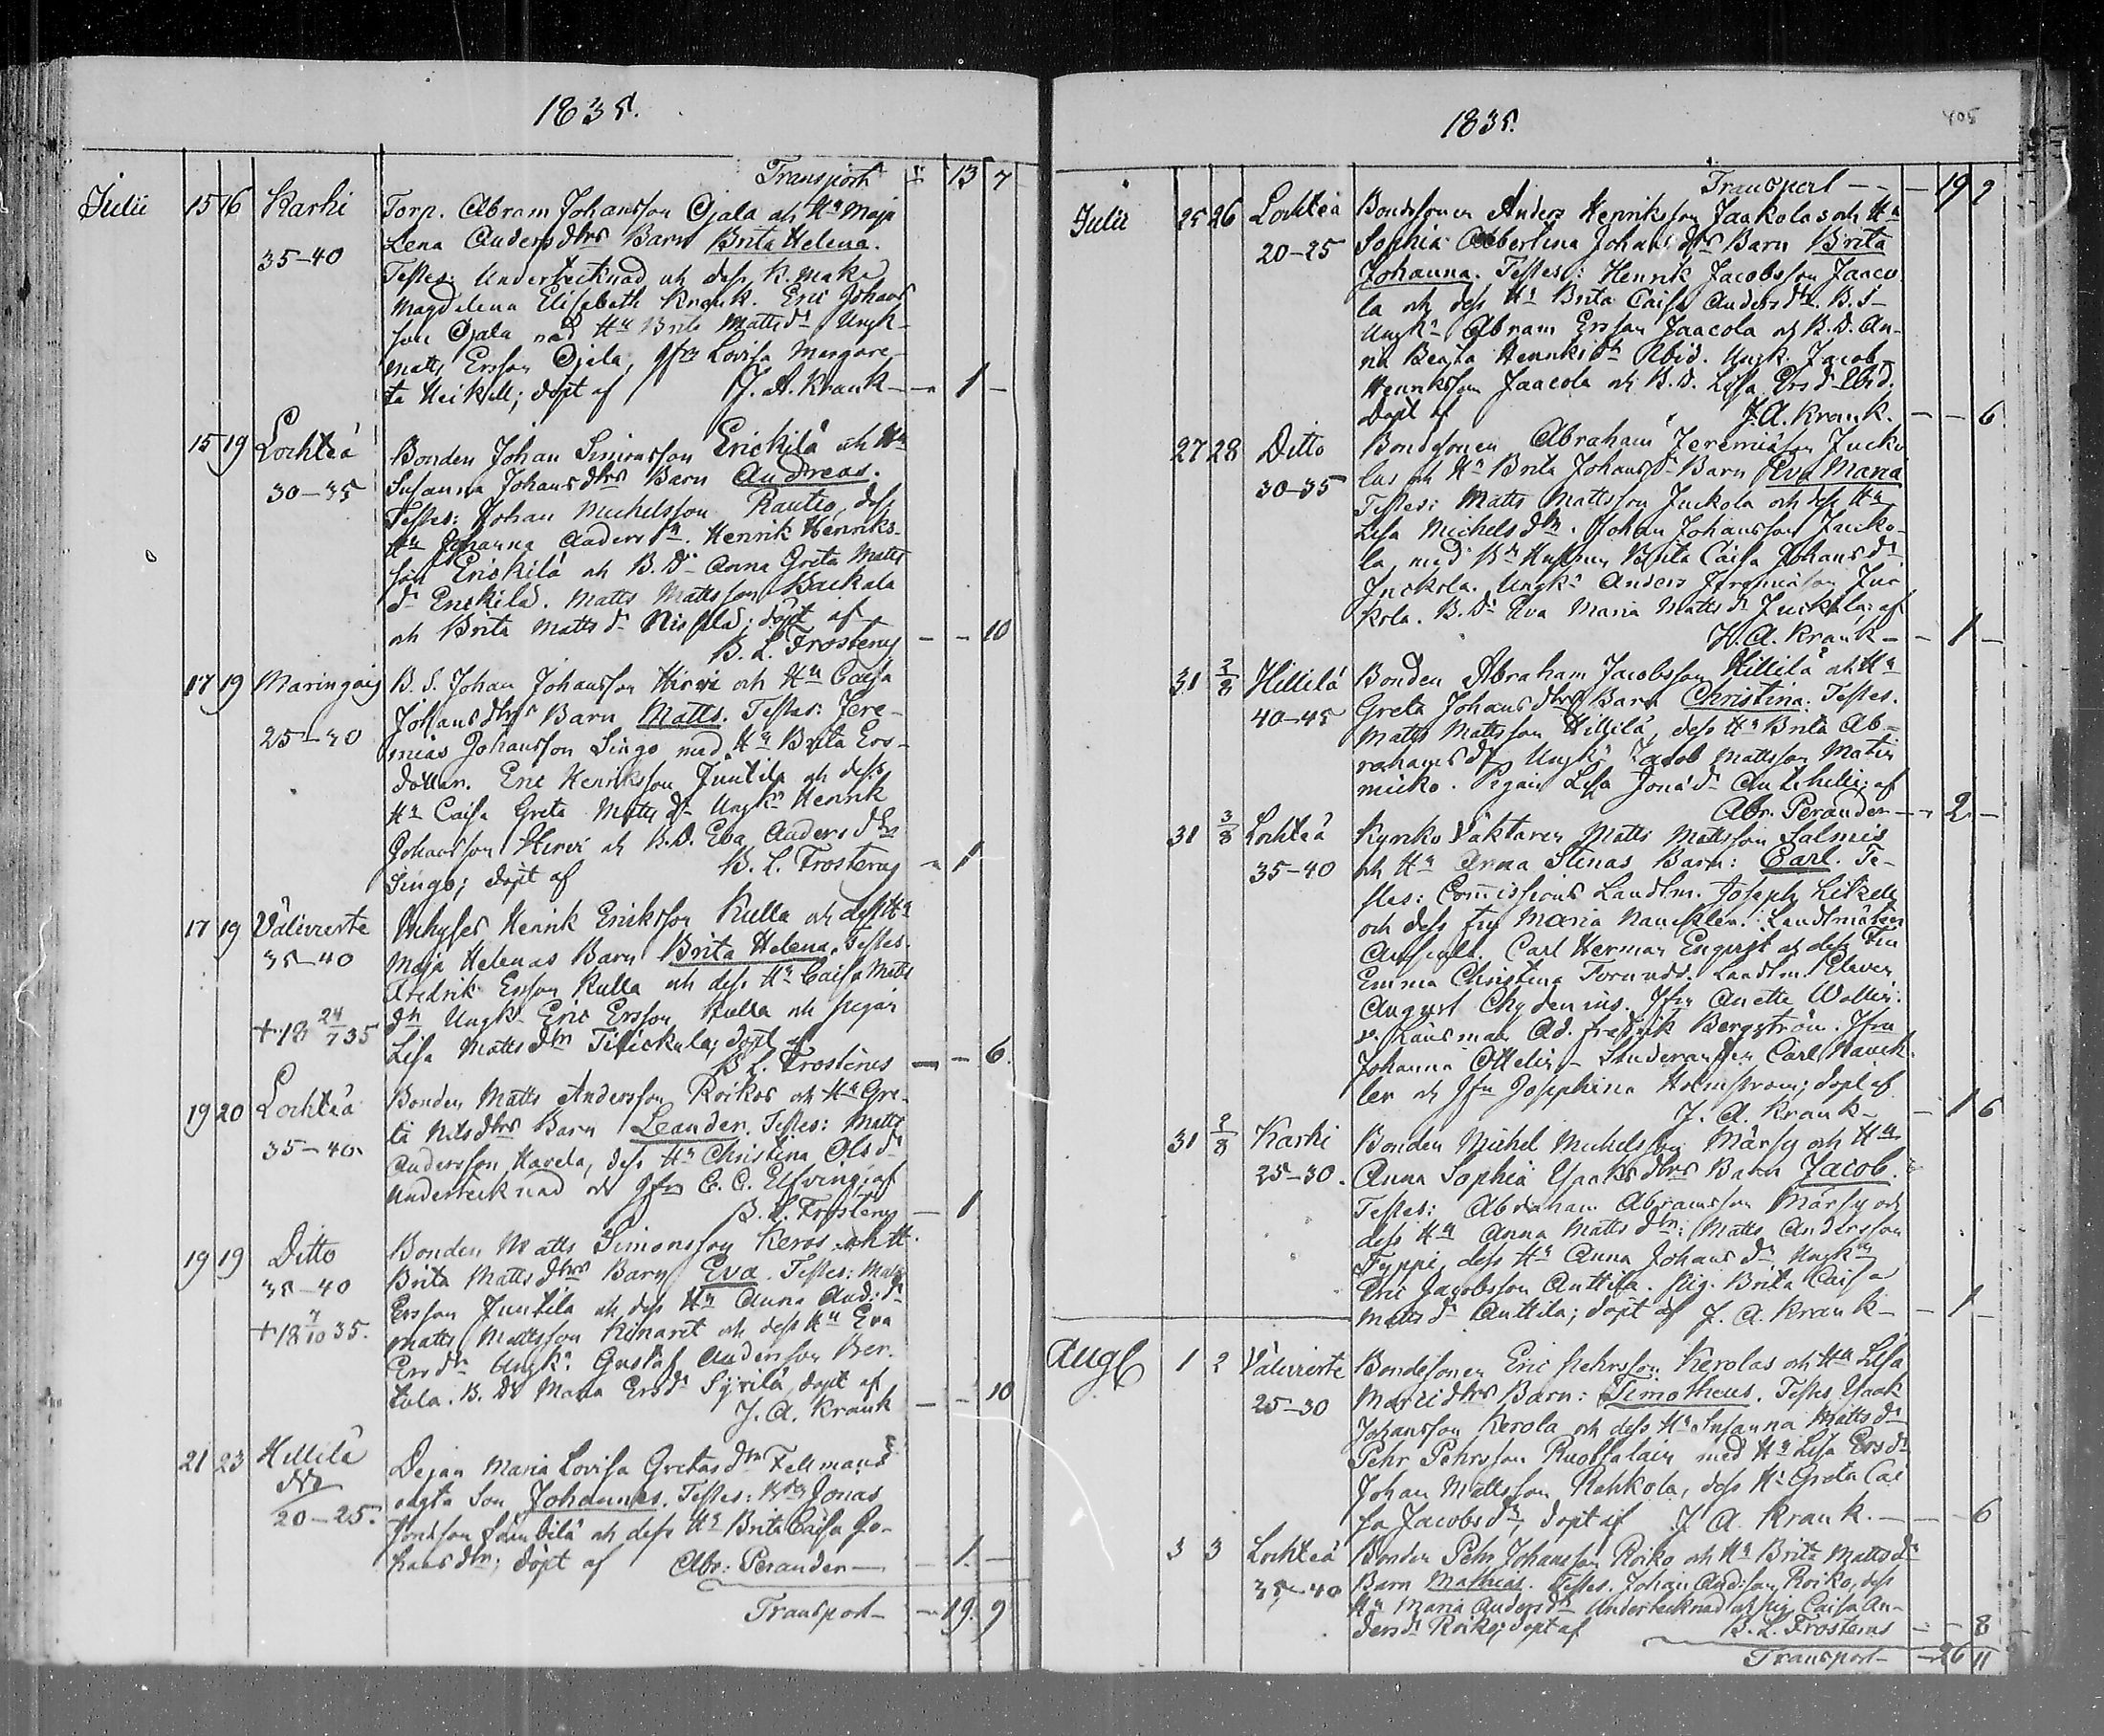 1835.
Transport 13 7
Julii 15 16 Karhi Torp. Abram Johansson Ojala och Hu Maja
35–40 Lena Andersdtrs Barn Brita Helena.
Testes: Undertecknad och dess K. Maka
Magdelena Elisabeth Krank. Eric Johans
son Ojala med Hu Brita Mattsdr Ungk.
Matts Ersson Ojala, Jfru Lovisa Margare-
ta Heikell; döpt af J. A. Krank — 1 —
15 19 Lochteå Bonden Johan Simonsson Erickilä och Hu
30–35 Susanna Johansdtrs Barn Andreas.
Testes: Johan Michelsson Rautio, dess
Hu Johanna Andersdtr. Henrik Henriks-
son Erickilä och B. Dr Anna Greta Matts
dr Erickilä. Matts Mattsson Backala
och Brita Mattsdr; döpt af
B. L. Frosterus — — 10
17 19 Maringais B. S. Johan Johansson Hirvi och Hu Caisa
25–30 Johansdtrs Barn Matts. Testes: Jere-
mias Johansson Lingo med Hu Brita Ers-
dotter. Eric Henriksson Juntila och dess
Hu Caisa Greta Mattsdr Ungkn Henrik
Johansson Hirvi och B. D. Eva Andersdtr
Lingo; döpt af B. L. Frosterus — 1
17 19 Välivierte Inhyses Henrik Ericksson Kulla och dess Hu
35–40 Maja Helenas Barn Brita Helena. Testes.
Fredrik Ersson Kulla och dess Hu Caisa Matts
+ 18 24/7 35 dtr Ungk. Eric Ersson Kulla och pigan
Lisa Mattsdtr; döpt af
B. L. Frosterus — — 6.
19 20 Lochteå Bonden Matts Andersson Roikos och Hu Gre-
35–40 ta Nilsdtrs Barn Leander. Testes: Matts
Andersson Havela, dess Hu Christina Olsdr
Undertecknad och Jfru C. C. Elfving; af
B. L. Frosterus — 1
19 19 Ditto Bonden Matts Simonsson Keros och H.
35–40 Brita Mattsdtrs Barn Eva. Testes: Matts
Ersson Juntila och dess Hu Anna And:dr
+ 18 7/10 35. Matts Mattsson Kinaret och dess Hu Eva
Ersdtr Ungk. Gustaf Andersson Ber-
tula. B. Dr Maria Ersdr Syrilä, döpt af
J. A. Krank — — 10
21 23 Hillilä Dejan Maria Lovisa Gretasdtr Fellmans
20–25. oägta Son Johannes. Testes: Bdn Jonas
Jonsson och dess Hu Brita Caisa Jo-
hansdtr; döpt af Abr: Perander — — 1. —
Transport — 19. 9
1835. 405
Transport — — 19 9
Julii 25 26 Lochteå Bondsonen Anders Henriksson Jaakolas och Hu
20–25 Sophia Albertina Johansdtrs Barn Brita
Johanna. Testes: Henrik Jacobsson Jaaco-
la och dess Hu Brita Caisa Andersdtr. B. S.
Ungkn Abram Ersson Jaacola och B. D. An-
na Beata Henriksdtr Ibid. Ungk. Jacob
Henriksson Jaacola och B. D. Lisa Ersdr Ibid.
döpt af J. A. Krank. — — 6
27 28 Ditto Bondsonen Abraham Jeremiasson Jucko
30–35 las och Hu Brita Johansdr Barn Eva Maria
Testes: Matts Mattsson Juckola och dess Hu
Lisa Michelsdtr. Johan Johansson Jucko-
la, med Hustrun Brita Caisa Johansdr
Juckola. Ungkn Anders Jeremiasson Juc
kola. B. Dr Eva Maria Mattsdr Juckola; af
J. A. Krank — — 1 —
31 2/8 Hillilä Bonden Abraham Jacobsson Hillilä och Hu
40–45 Greta Johansdtrs Barn Christina. Testes.
Matts Mattsson Hillilä, dess Hu Brita Ab-
rahamsdr Ungkn Jacob Mattsson
Pigan Lisa Jonædr; af
Abr. Perander — — 2 —
31 3/8 Lochteå Kyrko Väktaren Matts Mattsson Salmis
35–40 och Hu Anna Stinas Barn: Carl. Te-
stes: Commissions Landtm. Joseph Litzell
och dess Fru Maria Nauckler. Landtmäteri
Auscult. Carl Herman Engvist och dess Fru
Emma Christina. Landtm. Eleven
August Chydenius. Jfru Anette Wallin.
v. Länsman Ad. Fredrik Bergström. Jfru
Johanna Ottelin – Studeranden Carl Nauck-
ler och Jfru Josephina Holmström; döpt af
J. A. Krank — 1 6
31 2/8 Karhi Bonden Michel Michelsson Märsy och Hu
25–30. Anna Sophia Isacksdtrs Barn Jacob.
Testes: Abraham Abramsson Märsy och
dess Hu Anna Mattsdtr: Matts Andersson
Typpi, dess Hu Anna Johansdr Ungkn
Eric Jacobsson Anttila. Pig. Brita Caisa
Mattsdr Anttila; döpt af J. A. Krank — — 1 —
Aug 1 2 Välivierte Bondesonen Eric Pehrsson Kerolas och Hu Lisa
25–30 Marcidtrs Barn: Timotheus. Testes Isaak
Johansson Kerola och dess Hu Susanna Mattsdr
Pehr Pehrsson Ruotsalain med Hu Lisa Ersdr
Johan Mattsson Rahkola, dess Hu Greta Cai
sa Jacobsdr, döpt af J. A. Krank. — — 6
3 3 Lochteå Bonden Pehr Johansson Roiko och Hu Brita Mattsdr
35–40 Barn Mathias. Testes. Johan Andsson Roiko, dess
Hu Maria Andersdtr Undertecknad och pig. Caisa An-
dersdr Roiko; döpt af B. L. Frosterus — — 8
Transport — 26 11